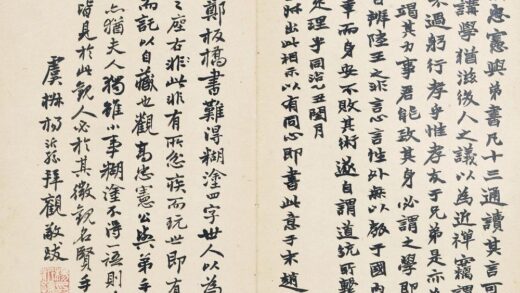 忠憲與弟書凡十三通讀其言可
講學猶滋後人之議以為近禪竊謂
不過躬行孝乎惟孝友于兄弟是亦
竭其力事君能致其身必謂之學即
日辨陸王之非言心言性外無以敵于國內
章而身安不敗其術遂自謂道統所繫
處理乎同治乙丑閏月
出此相示以有同心即書此意于末趙
鄭板橋書難得糊塗四字世人以為
之座右非此非有所忿疾而玩世即有
而託以自藏也觀高忠憲公與弟手
亦猶夫人獨雖小事糊塗不得一語則
皆見於此觀人必於其微觀名賢手
虞楊沂孫拜觀敬跋